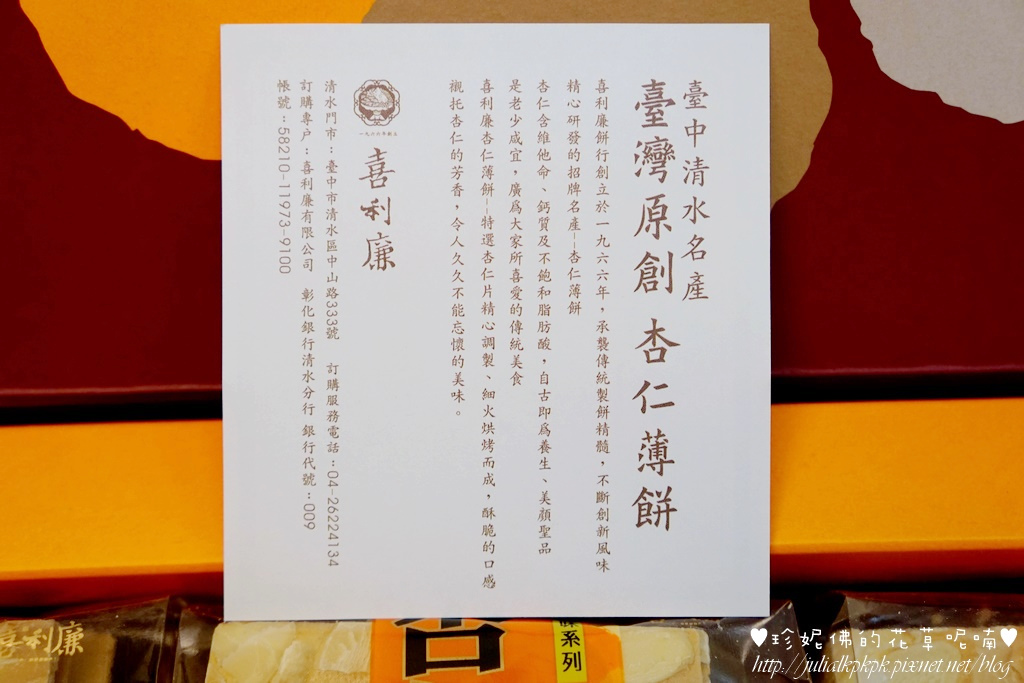 臺中清水名產
臺灣原創 杏仁薄餅
喜利廉餅行創立於一九六六年，承襲傳統製餅精髓，不斷創新風味
精心研發的招牌名產--杏仁薄餅
杏仁含維他命、鈣質及不飽和脂肪酸，自古即為養生、美顏聖品
是老少咸宜，廣為大家所喜愛的傳統美食
喜利廉杏仁薄餅--特選杏仁片精心調製、細火烘烤而成，酥脆的口感
襯托杏仁的芳香，令人久久不能忘懷的美味。
一九六六年創立
喜利廉
清水門市：臺中市清水區中山路333號 訂購服務電話：04-26224134
訂購專戶：喜利廉有限公司 彰化銀行清水分行 銀行代號：009
帳號：58210-11973-9100
喜利廉
杏
系列
♥珍妮佛的花草呢喃♥
http://julialkpkpk.pixnet.net/blog